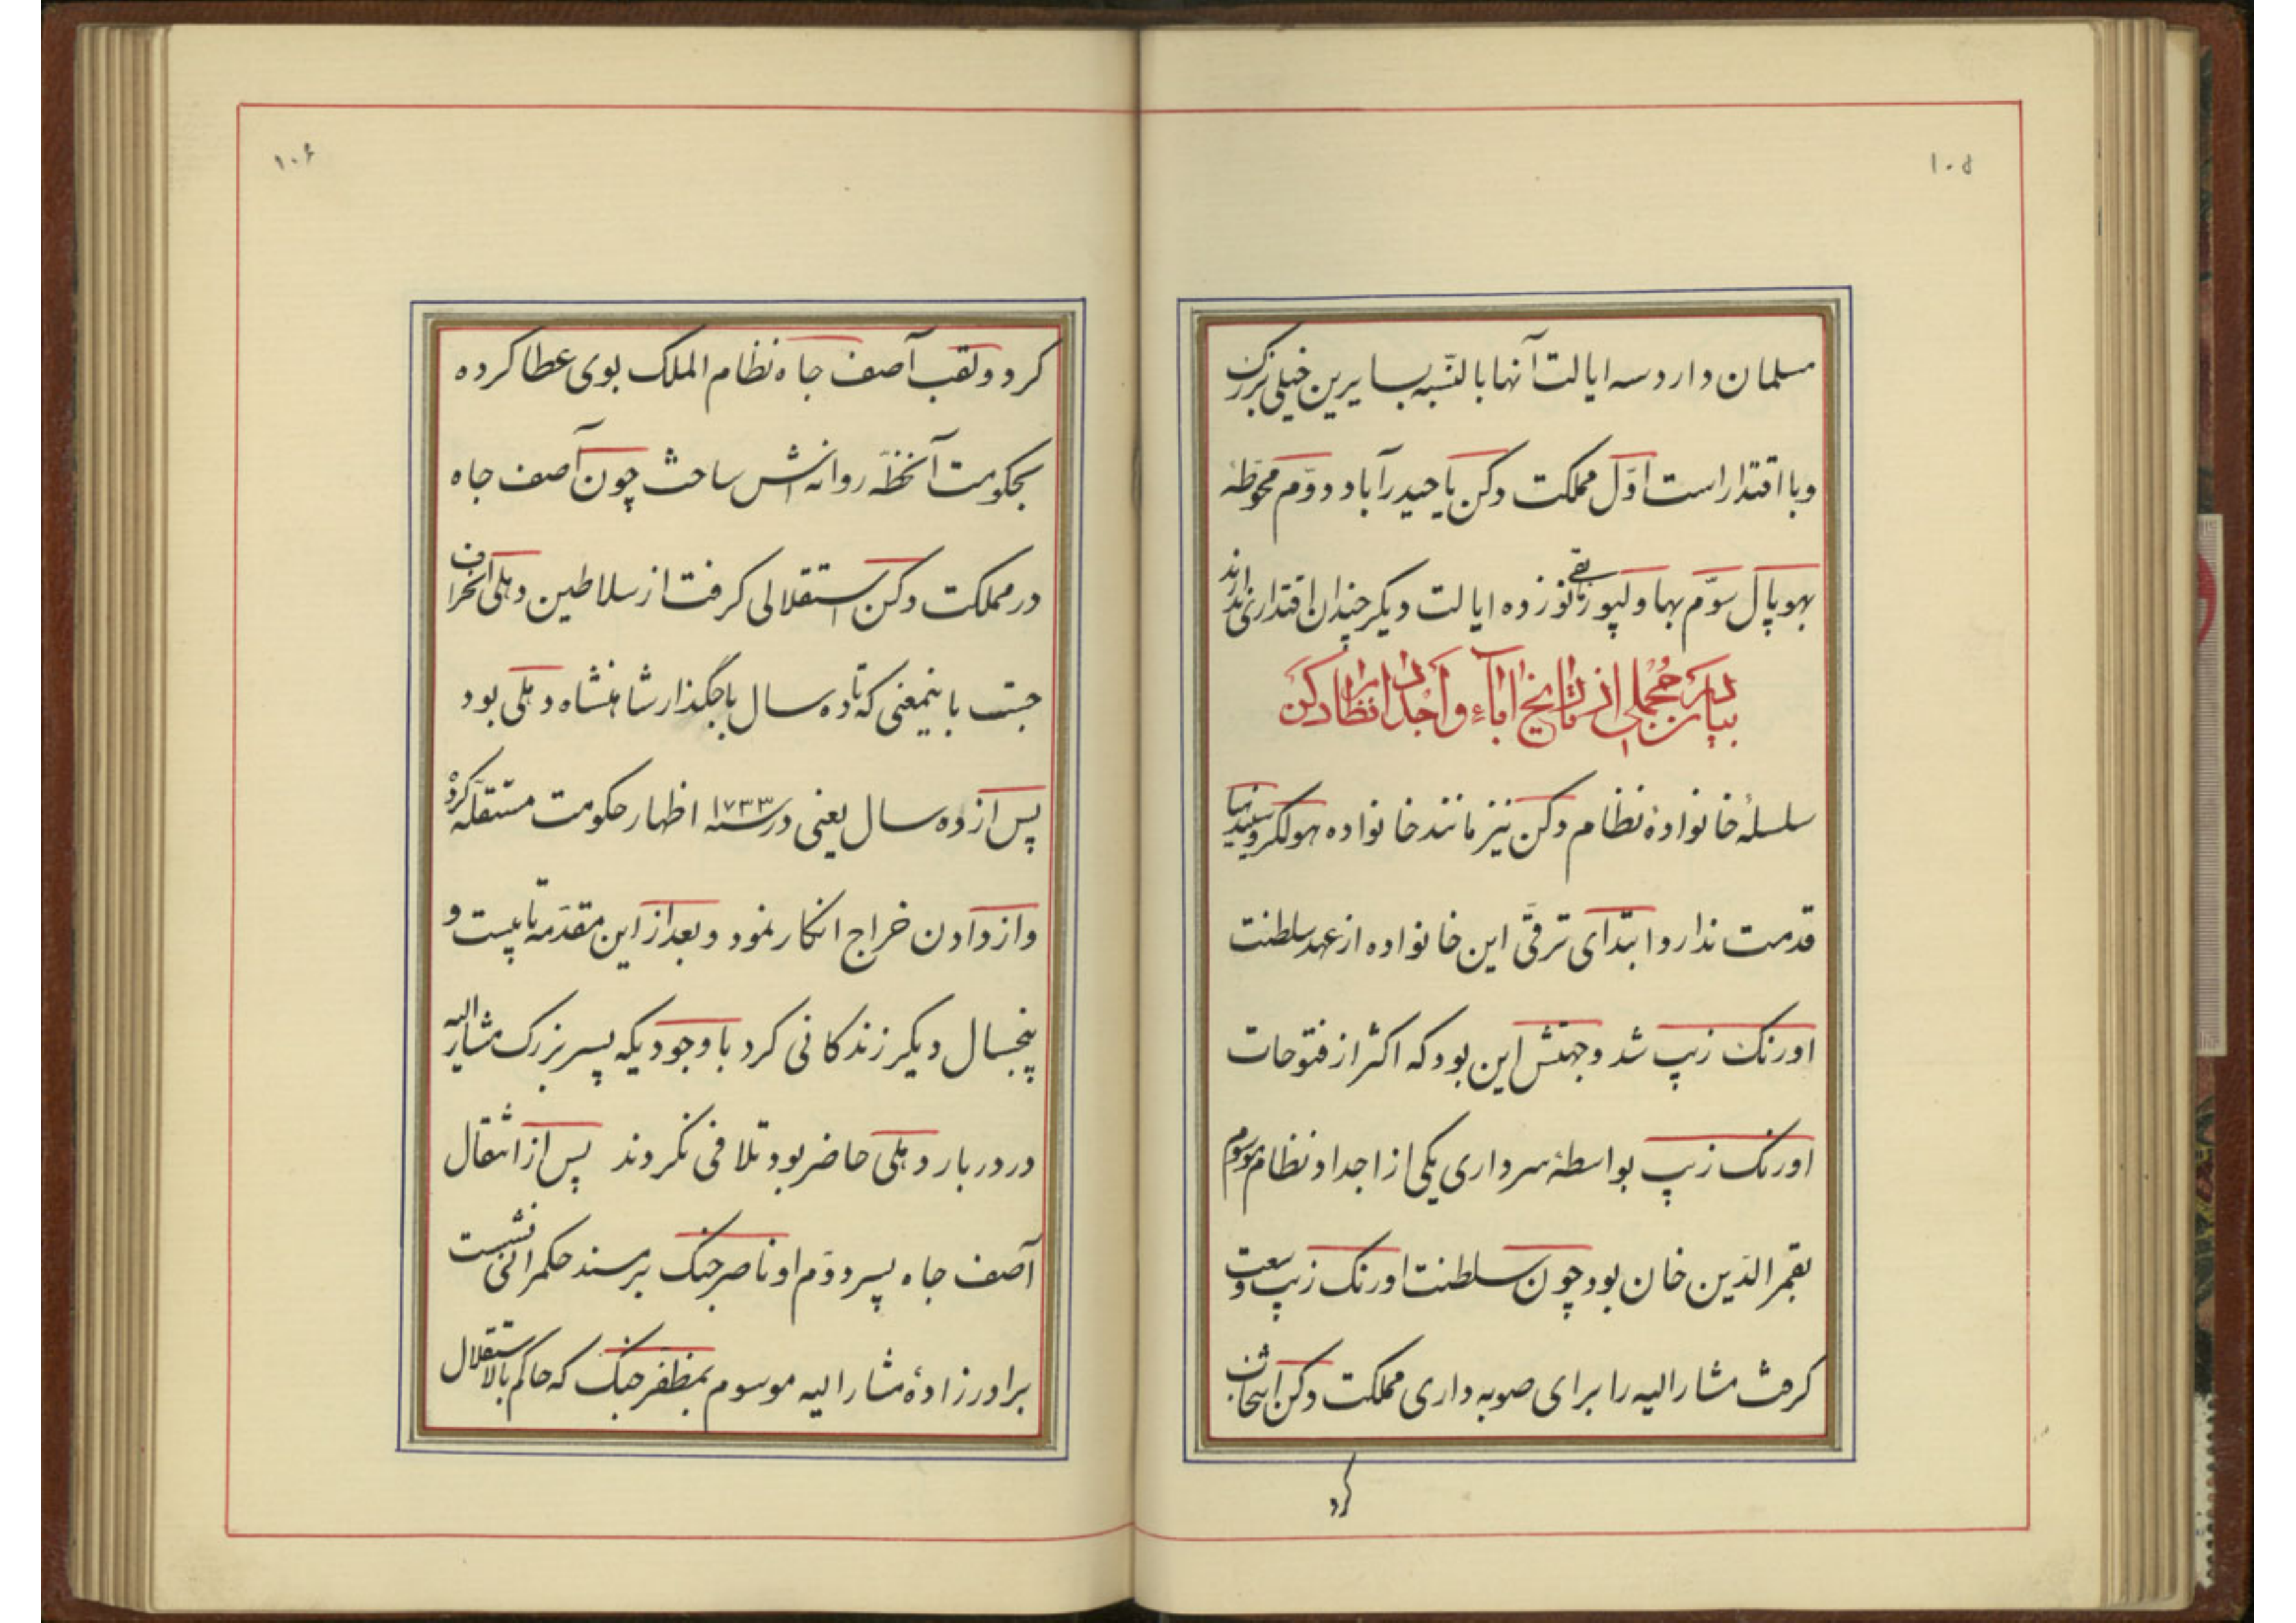 ۱۰۵
مسلمان دارد سه ایالت آنها بالنّسبه بسایرین خیلی بزرک
وبا اقتدار است اوّل مملکت دکن یا حیدرآباد دوّم محوّطهٔ
بهوپال سوّم بهاولپور بقیّه نوزده ایالت دیکر چندان اقتداری ندارند
بیان مجملی از تاریخ اباء و اجداد نظام دکن
سلسلهٔ خانوادهٔ نظام دکن نیز مانند خانواده هولکر وسیندیا
قدمت ندارد ابتدای ترقّی این خانواده از عهد سلطنت
اورنک زیب شد وجهتش این بود که اکثر از فتوحات
اورنک زیب بواسطهٔ سرداری یکی از اجداد نظام موسوم
بقمرالدّین خان بود چون سلطنت اورنک زیب وسعت
کرفت مشارالیه را برای صوبه داری مملکت دکن انتخاب
کرد
۱۰۶
کرد ولقب آصف جاه نظام الملک بوی عطا کرده
بحکومت آنخطّه روانه اش ساخت چون آصف جاه
در مملکت دکن استقلالی کرفت از سلاطین دهلی انحراف
جست باینمعنی که تا ده سال باجگذار شاهنشاه دهلی بود
پس از ده سال یعنی در سنه ۱۷۳۳ اظهار حکومت مستقلّه کرد
واز دادن خراج انکار نمود وبعد از این مقدّمه تا بیست و
پنجسال دیکر زندکانی کرد با وجودیکه پسر بزرک مشارالیه
در دربار دهلی حاضر بود تلافی نکردند پس از انتقال
آصف جاه پسر دوّم او ناصر جنک بر مسند حکمرانی نشست
برادرزادهٔ مشارالیه موسوم بمظفّر جنک که حاکم بالاستقلال